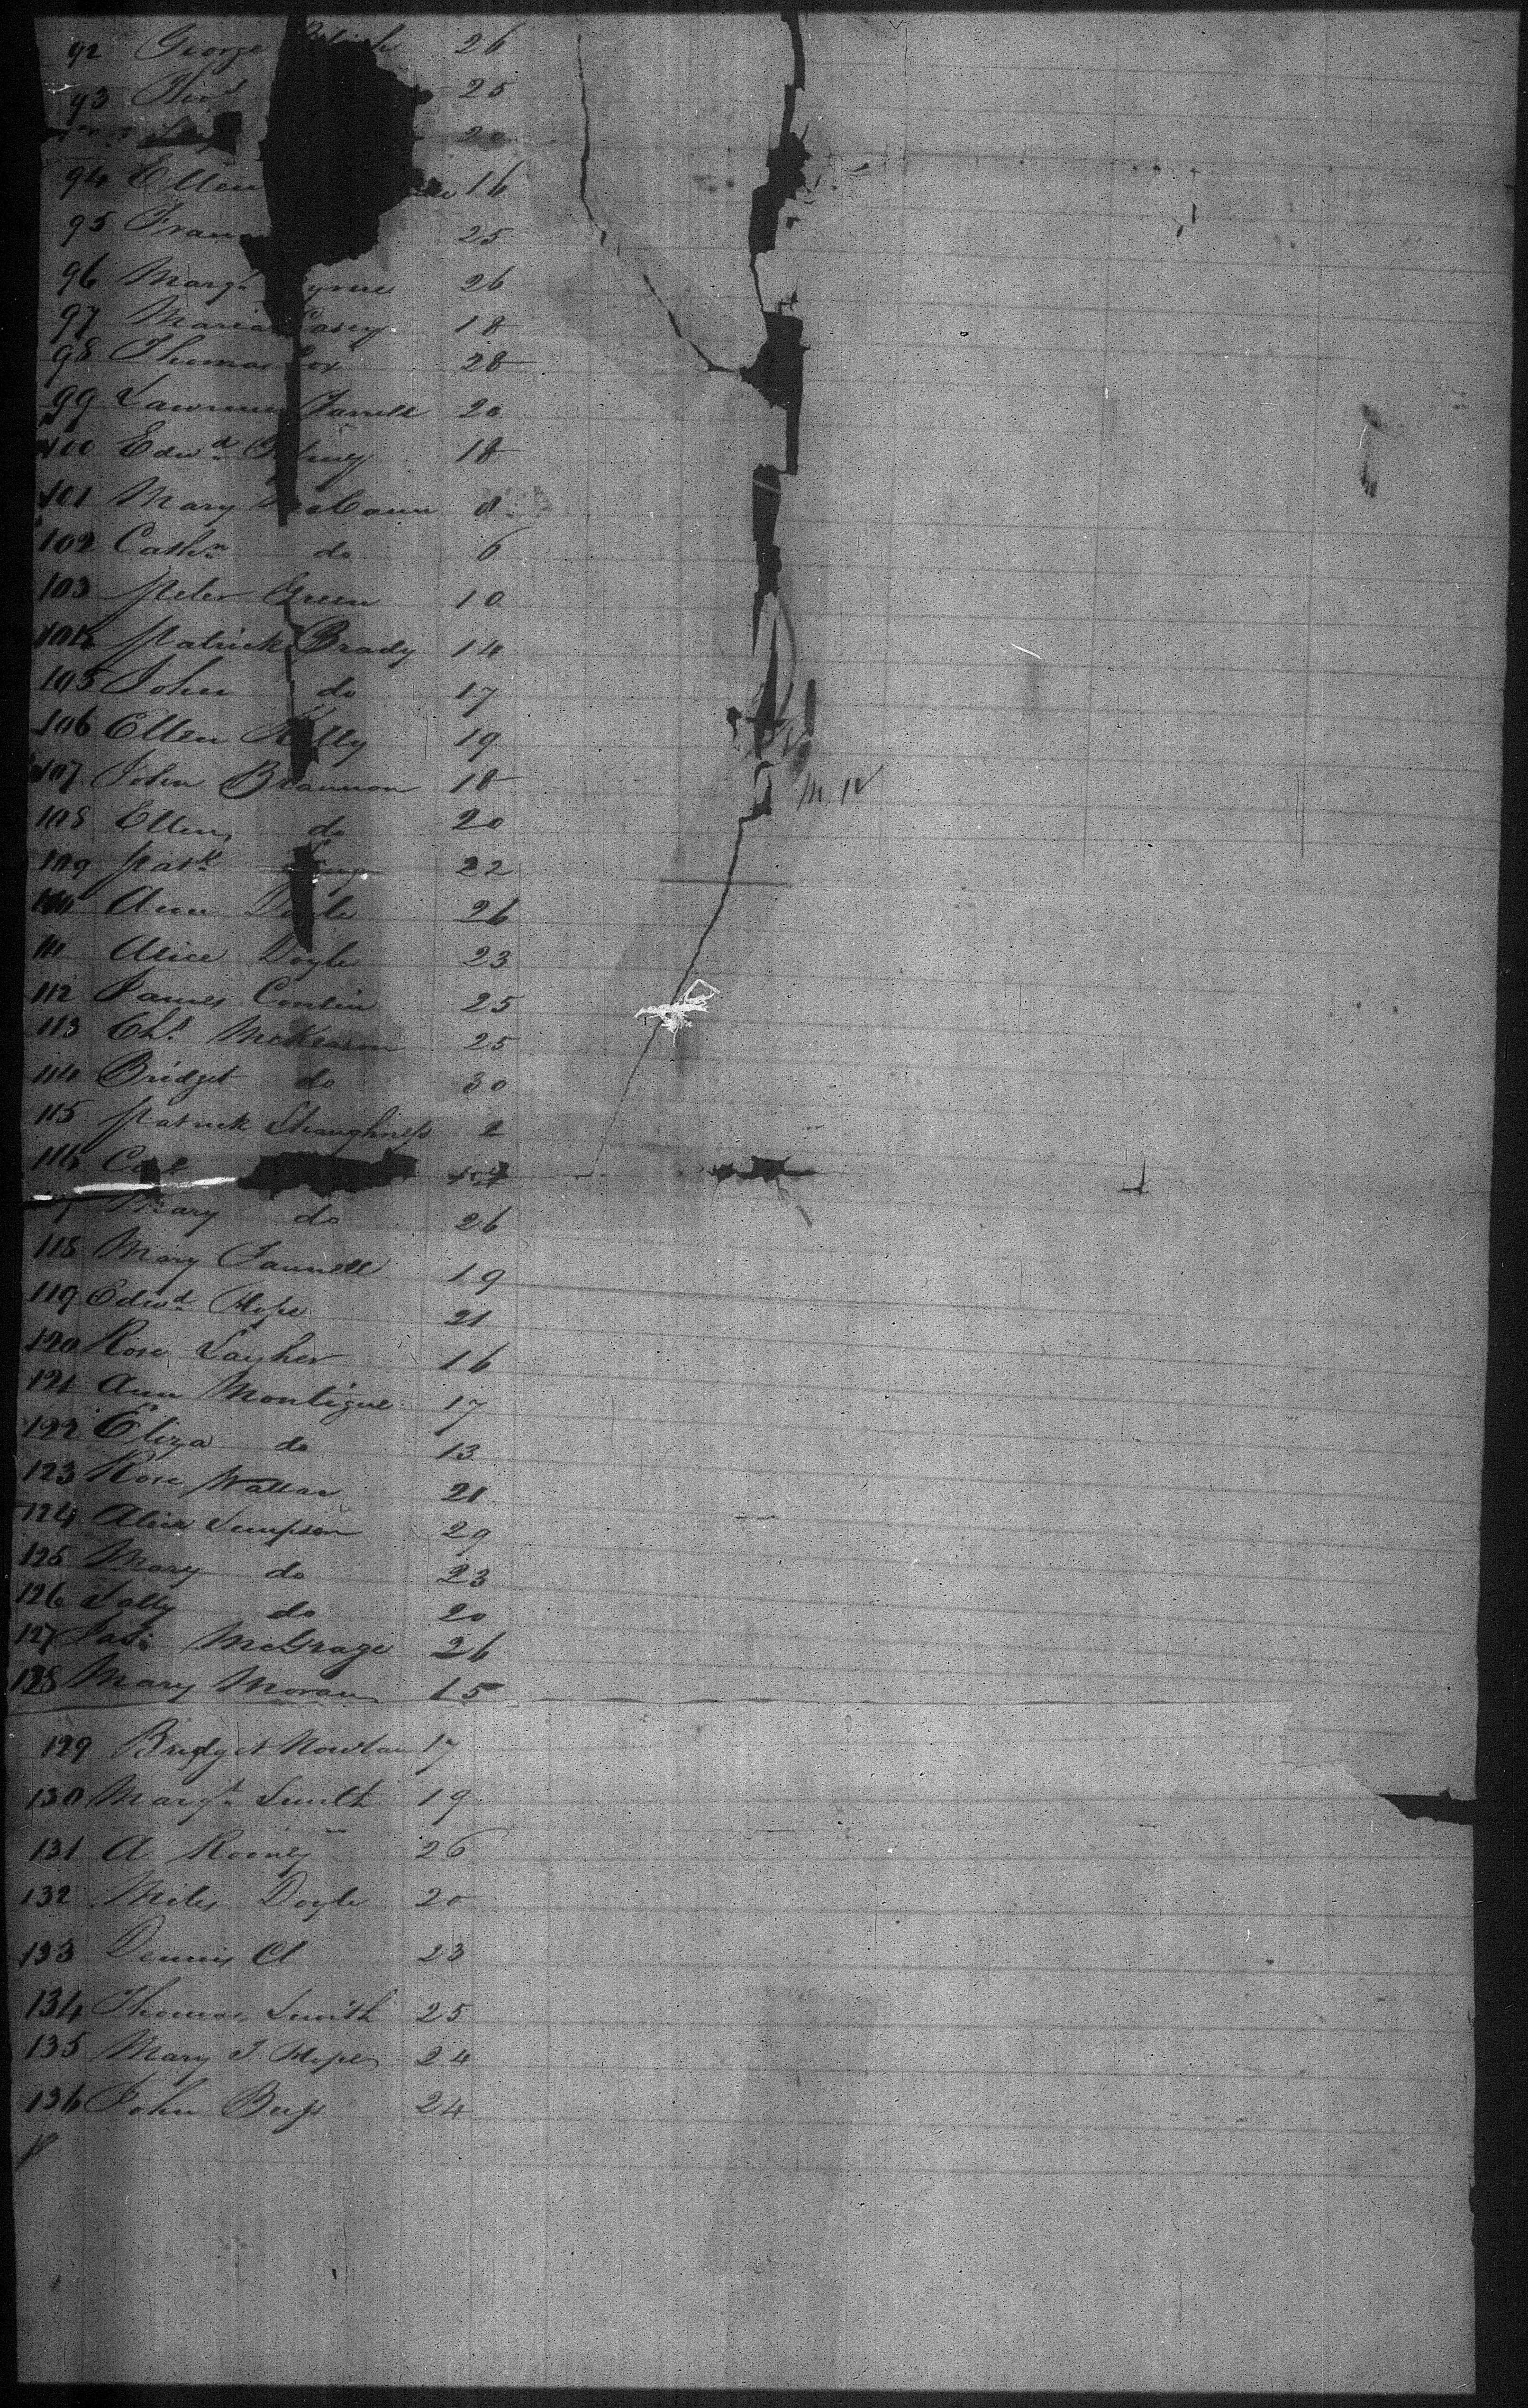 92 George 26
93 Tho.s 25
20
94 Ellen 16
95 25
96 Marg.t 26
97 Maria Casey 18
98 Thomas 28
99 Lawrence Farrell 20
100 Edw.d 18
101 Mary McCann 8
102 Cath.n do 6
103 Peter Green 10
104 Patrick Brady 14
105 John do 17
106 Ellen Kelly 19
107 John Brannon 18
108 Ellen do 20
109 Pat.k 22
110 Ann Doyle 26
111 Alice Doyle 23
112 James Conlin 25
113 Ch.s McKearon 25
114 Bridget do 30
115 Patrick Shaughness 2
116
Mary do 26
118 Mary Farrell 19
119 Edw.d Hope 21
120 Rose Layher 16
121 Ann Montigue 17
122 Eliza do 13
123 Rose Wallace 21
124 Alice Simpson 29
125 Mary do 23
126 Sally do 20
127 Ja.s McGrage 26
128 Mary Moran 15
129 Bridget Nowlan 17
130 Marg.t Smith 19
131 A Rooney 26
132 Miles Doyle 20
133 Dennis Cl 23
134 Thomas Smith 25
135 Mary T Hope 24
136 John 24